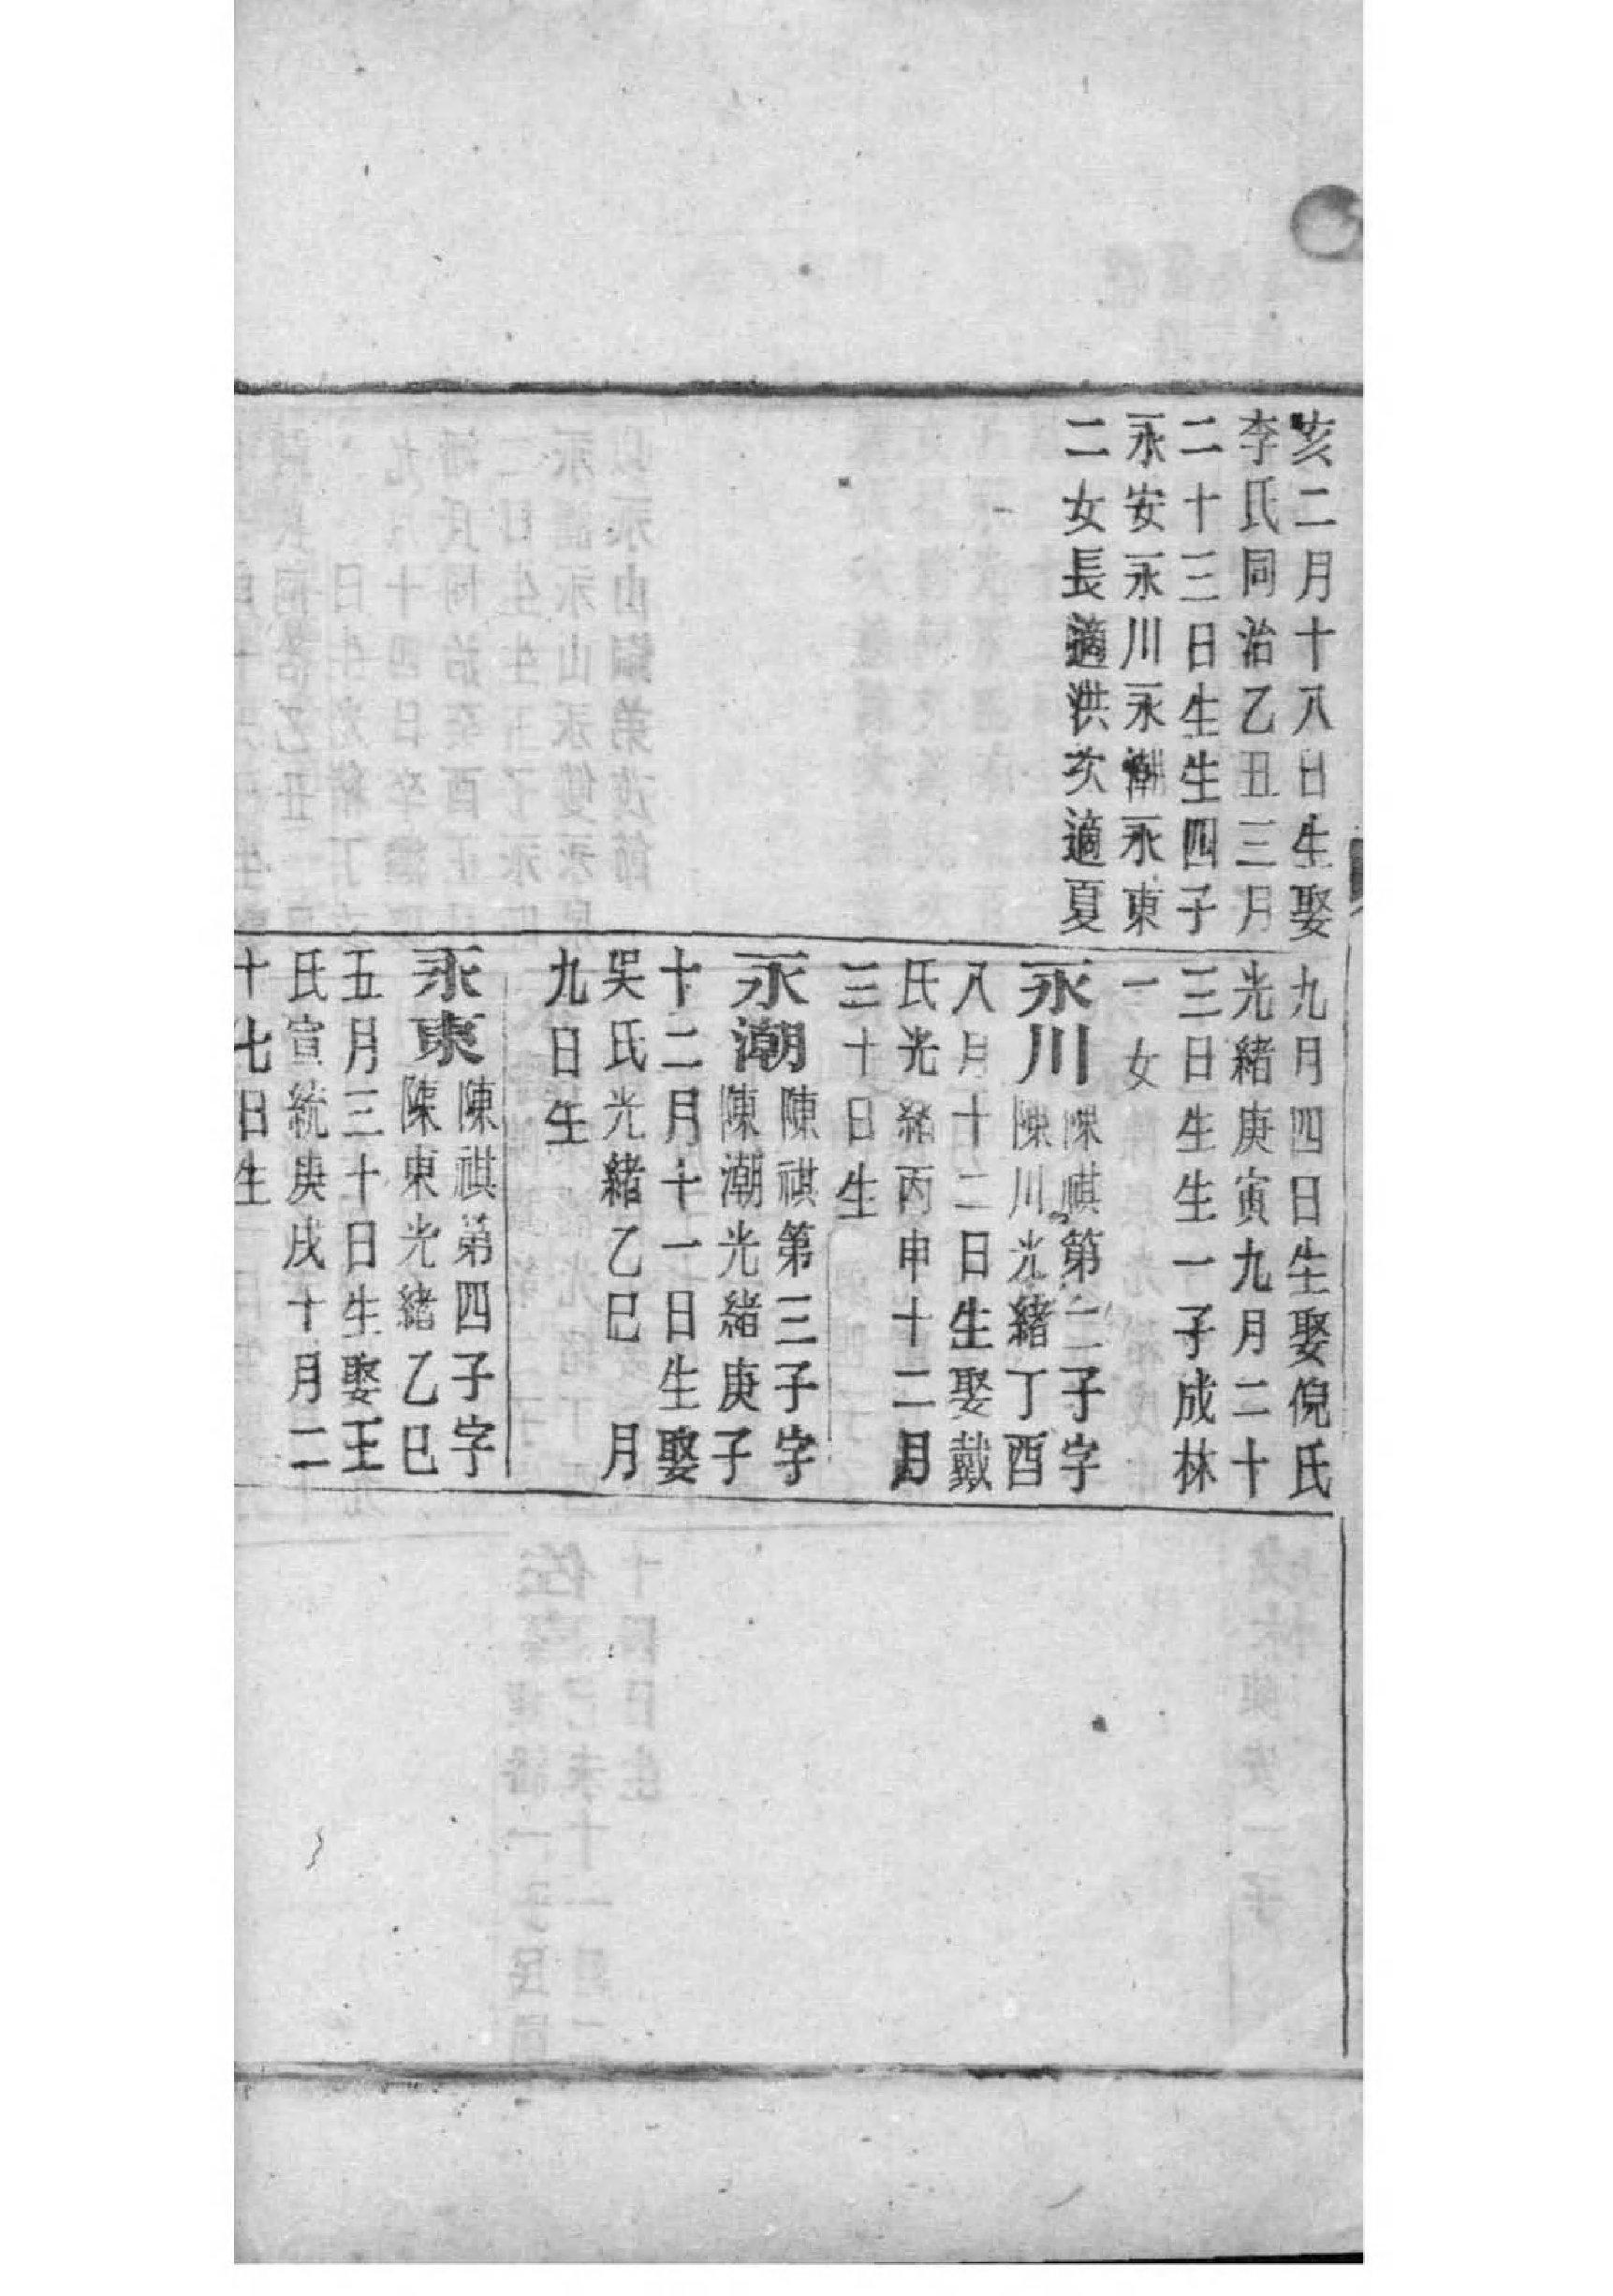 亥二月十八日生娶
李氏同治乙丑三月
二十三日生生四子
永安永川永潮永東
二女長適洪次適夏
九月四日生娶倪氏
光緒庚寅九月二十
三日生生一子成林
一女
永川陳祺第二子字
陳川光緒丁酉
八月十二日生娶戴
氏光緒丙申十二月
三十日生
永潮陳祺第三子字
陳潮光緒庚子
十二月十一日生娶
吳氏光緒乙巳 月
九日生
永東陳祺第四子字
陳東光緒乙巳
五月三十日生娶王
氏宣統庚戌十月二
十七日生